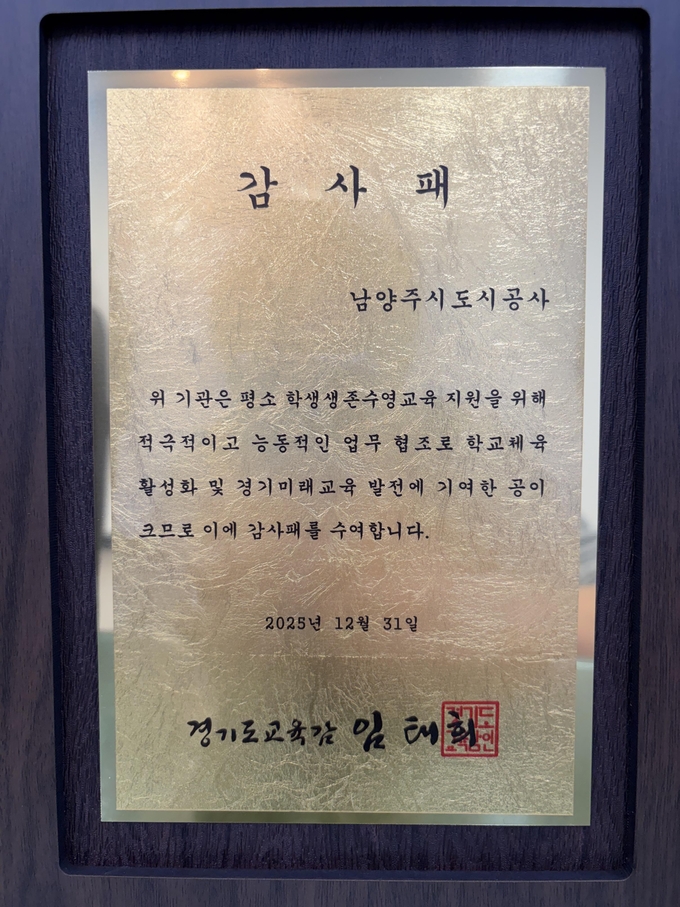 감 사 패
남양주시도시공사
위 기관은 평소 학생생존수영교육 지원을 위해
적극적이고 능동적인 업무 협조로 학교체육
활성화 및 경기미래교육 발전에 기여한 공이
크므로 이에 감사패를 수여합니다.
2025년 12월 31일
경기도교육감 임 태희
경기도
교육감인